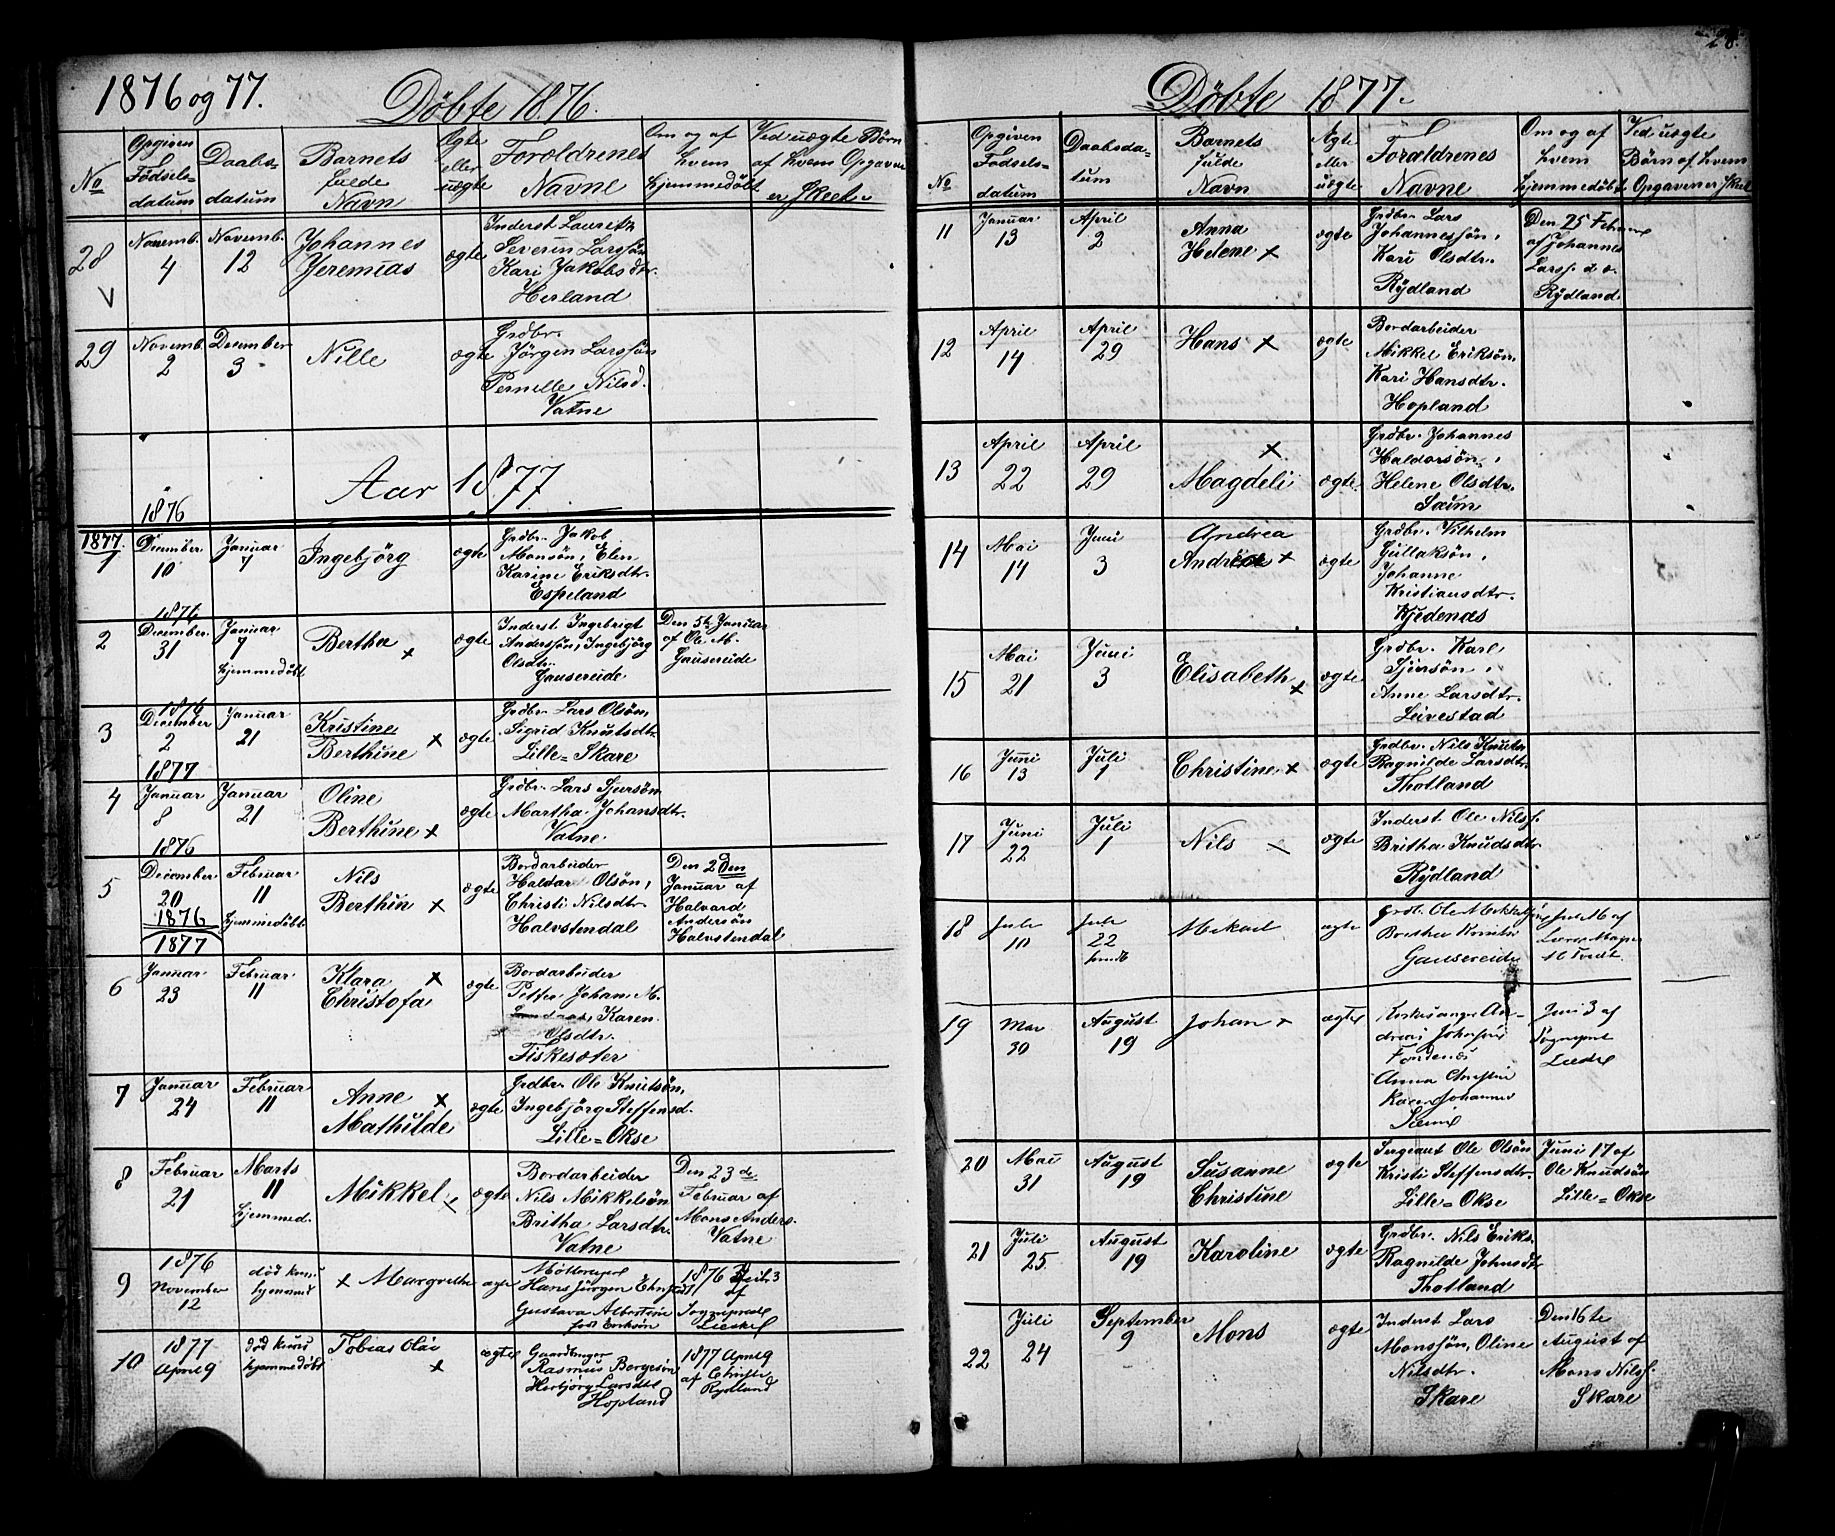 1876 og 77.
Döbte 1876.
No
Opgiven Födsels- datum
Daabs- datum
Barnets fulde Navn
Ægte eller uægte
Forældrenes Navne
Om og af hvem hjemmedöbt
Ved uægte Börn af hvem Opgaven er skeet
28 Novemb. 4 Novemb. 12 Johannes Jeremias ægte
Inderst Lauritz
Severin Larssön
Kari Jakobsdtr.
Herland
29 Novemb. 2 December 3 Nille ægte
Grdbr.
Jörgen Larssön
Pernille Nilsd.
Vatne
Aar 1877
1876
1877
1 December 10 Januar 7 Ingebjörg ægte
Grdbr. Jakob
Monsön, Elen
Karine Eriksdtr.
Espeland
1876
2 December 31 Januar 7 hjemmedöbt Bertha × ægte
Inderst. Ingebrigt
Anderssön, Ingebjörg
Olsdtr.
Gausereide
Den 5te Januar
af Ole M.
Gausereide
1876
3 December 2 Januar 21 Kristine Berthine × ægte
Grdbr. Lars Olsön,
Sigrid Knutsdtr.
Lille=Skare
1877
4 Januar 8 Januar 21 Oline Berthine × ægte
Grdbr. Lars Sjursön
Martha Johansdtr.
Vatne
1876
5 December 20 Februar 11 hjemmedöbt Nils Berthin × ægte
Bordarbeider
Haldar Olsön,
Christi Nilsdtr.
Halvstendal
Den 2den
Januar af
Halvard
Andersön
Halvstendal
1876
1877
6 Januar 23 Februar 11 Klara × Christofa ægte
Bordarbeider
Petter Johan M.
Karen
Olsdtr.
Fiskesæter
7 Januar 24 Februar 11 Anne × Mathilde ægte
Grdbr. Ole Knutsön,
Ingebjörg Steffensd.
Lille=Okse
8 Februar 21 Marts 11 hjemmed. Mikkel × ægte
Bordarbeider
Nils Mikkelsön
Britha Larsdtr.
Vatne
Den 23de
Februar af
Mons Anders.
Vatne
1876
9 November 12 död hjemmed × Margrethe ægte
Hans Jürgen
Gustava Albertine
född Erikson
1876
af
Sogneprest
1877
10 April 9 död hjemmedöbt Tobias Olai × ægte
Gaardbruger
Rasmus Borgesön
Herbjörg Larsdtr
Hopland
1877 April 9
af Christi
Rydland
28.
Döbte 1877.
No
Opgiven Födsels- datum
Daabsda- tum
Barnets fulde Navn
Ægte eller uægte
Forældrenes Navne
Om og af hvem hjemmedöbt
Ved uægte Börn af hvem Opgaven er skeet
11 Januar 13 April 2 Anna Helene × ægte
Grdbr. Lars
Johannessön,
Kari Olsdtr.
Rydland
Den 25 Febr.
af Johannes
Larss. d. o.
Rydland
12 April 14 April 29 Hans × ægte
Bordarbeider
Mikkel Eriksön,
Kari Hansdtr.
Hopland
13 April 22 April 29 × Magdeli ægte
Grdbr. Johannes
Haldorsön,
Helene Olsdtr.
Sæim
14 Mai 14 Juni 3 Andrea Andrea × ægte
Grdbr. Vilhelm
Gullaksön,
Johanne
Kristiansdtr.
Kjedenæs
15 Mai 21 Juni 3 Elisabeth × ægte
Grdbr. Karl
Sjursön,
Anne Larsdtr.
Leirestad
16 Juni 13 Juli 1 Christine × ægte
Grdbr. Nils Knuts
Ragnilde Larsdtr.
Thotland
17 Juni 22 Juli 1 Nils × ægte
Inderst Ole Nilss.
Britha Knudsdtr
Rydland
18 Juli 10 Juli 22 Mikael ægte
Grdb. Ole Mikkels
Brithe
Gausereide
Juli 16 af
Tvedt
19 Mai 30 August 19 Johan × ægte
Kirkesanger An-
dreas
Anna Christine
Karen Johannes
Sæim
Juni 3 af
Sogneprest
20 Mai 31 August 19 Susanne Christine ægte
Sergeant Ole Olsön
Kristi Steffensdtr.
Lille=Okse
Juni 17 af
Ole Knudsön
Lille=Okse
21 Juli 25 August 19 Karoline ægte
Grdbr. Nils Eriks.
Ragnilde Johnsdtr
Thotland
22 Juli 24 September 9 Mons ægte
Inderst Lars
Monssön, Oline
Nilsdtr.
Skare
Den 16te
August af
Mons Nilss.
Skare